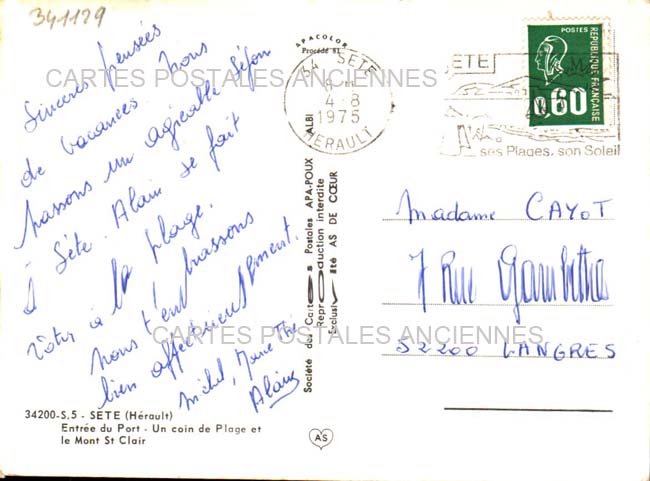 341129
Sincères pensées
de vacances. Nous
passons un agréable séjour
à Sète. Alain se fait
rôtir à la plage.
Nous t'embrassons
bien affectueusement.
Michel, Marie Thé
Alain
CARTES POSTALES ANCIENNES
CARTES POSTALES ANCIENNES
34200-S.5 - SETE (Hérault)
Entrée du Port - Un coin de Plage et
le Mont St Clair
APACOLOR
Procédé SL
ALBI
Société des Cartes Postales APA-POUX
Reproduction interdite
Exclusivité AS DE CŒUR
AS
34 SETE
4-8
1975
HERAULT
SETE
ses Plages, son Soleil
POSTES
REPUBLIQUE FRANÇAISE
0,60
Madame CAYOT
7 Rue Gambetta
52200 LANGRES